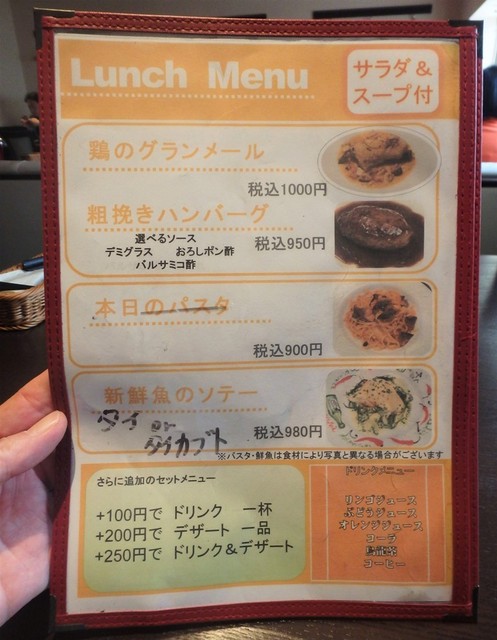 Lunch Menu
サラダ＆
スープ付
鶏のグランメール
税込1000円
粗挽きハンバーグ
選べるソース
デミグラス おろしポン酢
バルサミコ酢
税込950円
本日のパスタ
税込900円
新鮮魚のソテー
タイ or
タイカブト
税込980円
※パスタ・鮮魚は食材により写真と異なる場合がございます
さらに追加のセットメニュー
+100円で ドリンク 一杯
+200円で デザート 一品
+250円で ドリンク＆デザート
ドリンクメニュー
リンゴジュース
ぶどうジュース
オレンジジュース
コーラ
烏龍茶
コーヒー